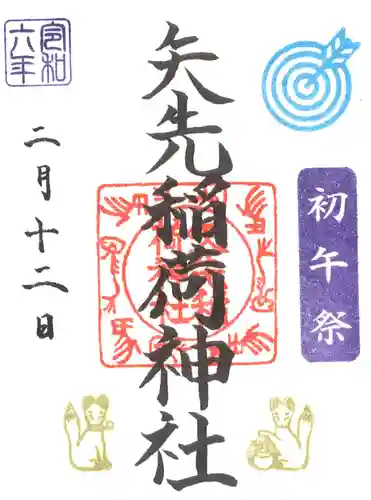 初午祭
矢先稲荷神社
令和
六年
二月十二日